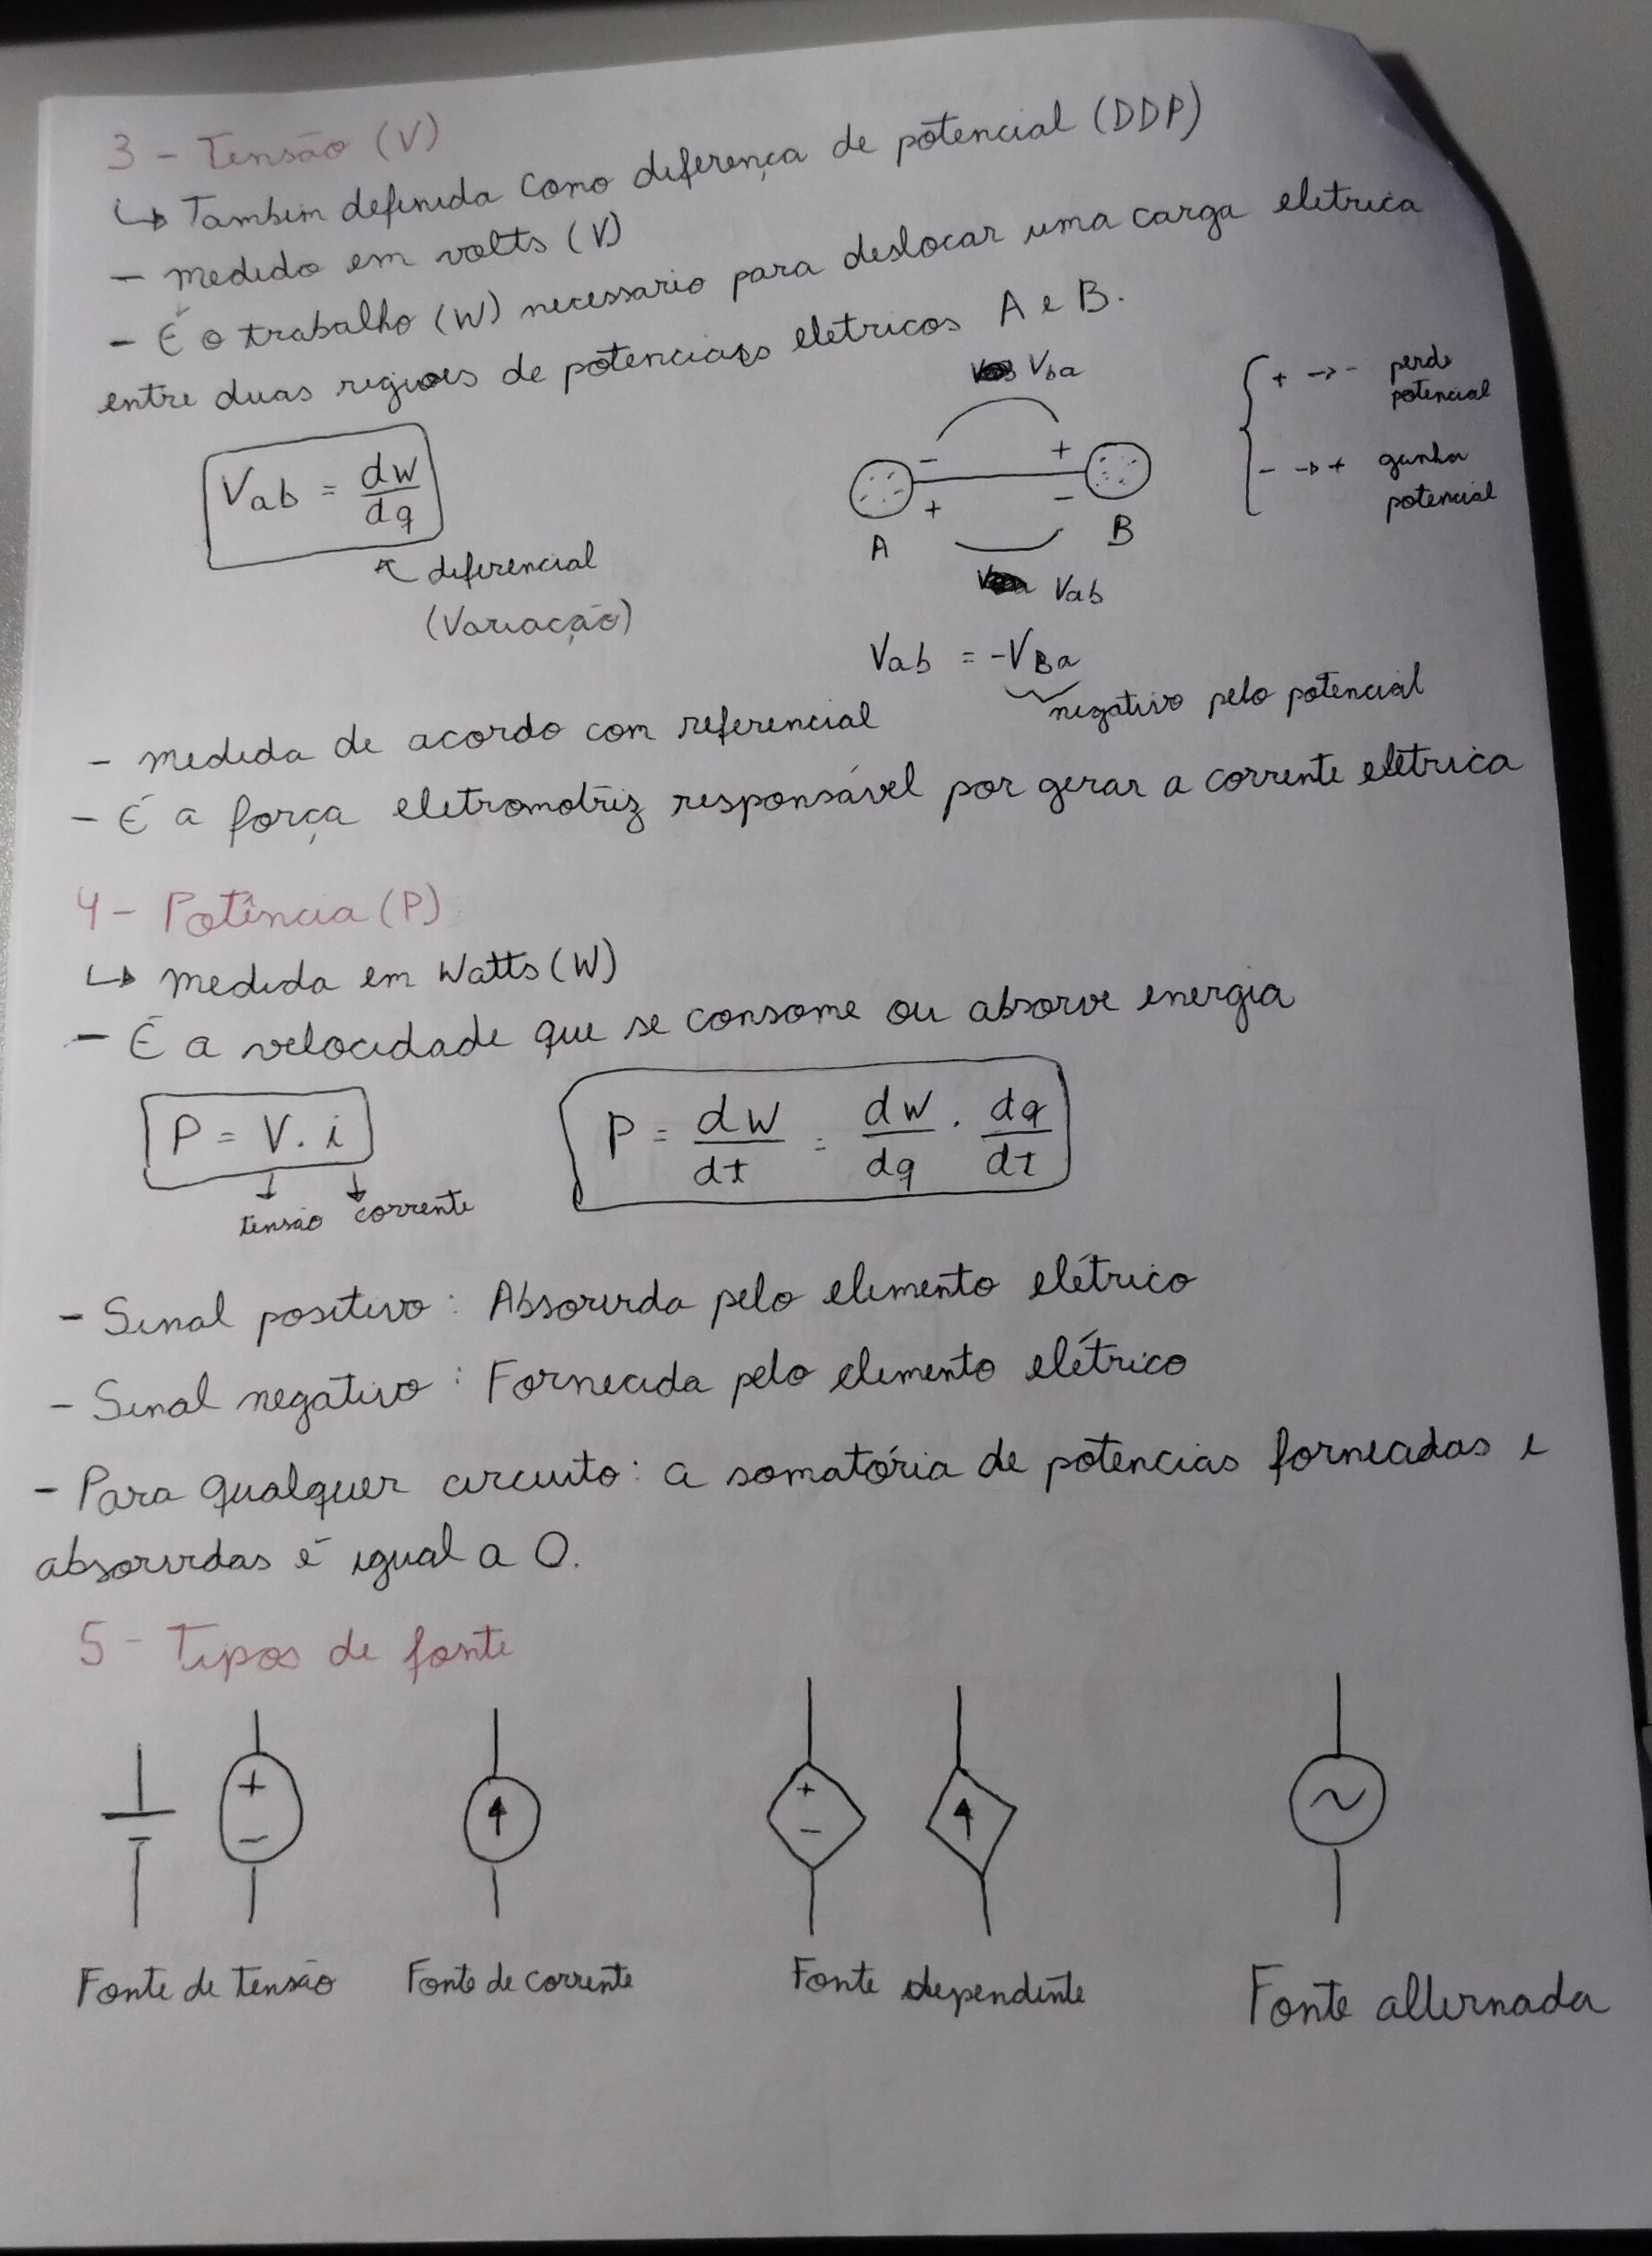 3 - Tensão (V)
↳ Tambem definida como diferença de potencial (DDP)
- medido em volts (V)
- É o trabalho (W) necessario para deslocar uma carga eletrica
entre duas regioes de potenciais eletricos A e B.
Vba
+ → - perde
potencial
- → + ganha
potencial
Vab = dw/dq
- +
+ -
A B
↖ diferencial
(Variação)
Vab
Vab = -VBa
negativo pelo potencial
- medida de acordo com referencial
- É a força eletromotriz responsável por gerar a corrente elétrica
4 - Potência (P)
↳ medida em Watts (W)
- É a velocidade que se consome ou absorve energia
P = V . i
P = dw/dt = dw/dq . dq/dt
tensão corrente
- Sinal positivo: Absorvida pelo elemento elétrico
- Sinal negativo: Fornecida pelo elemento elétrico
- Para qualquer circuito: a somatória de potencias fornecidas e
absorvidas é igual a 0.
5 - Tipos de fonte
+ - + - ~
Fonte de tensão Fonte de corrente Fonte dependente Fonte alternada